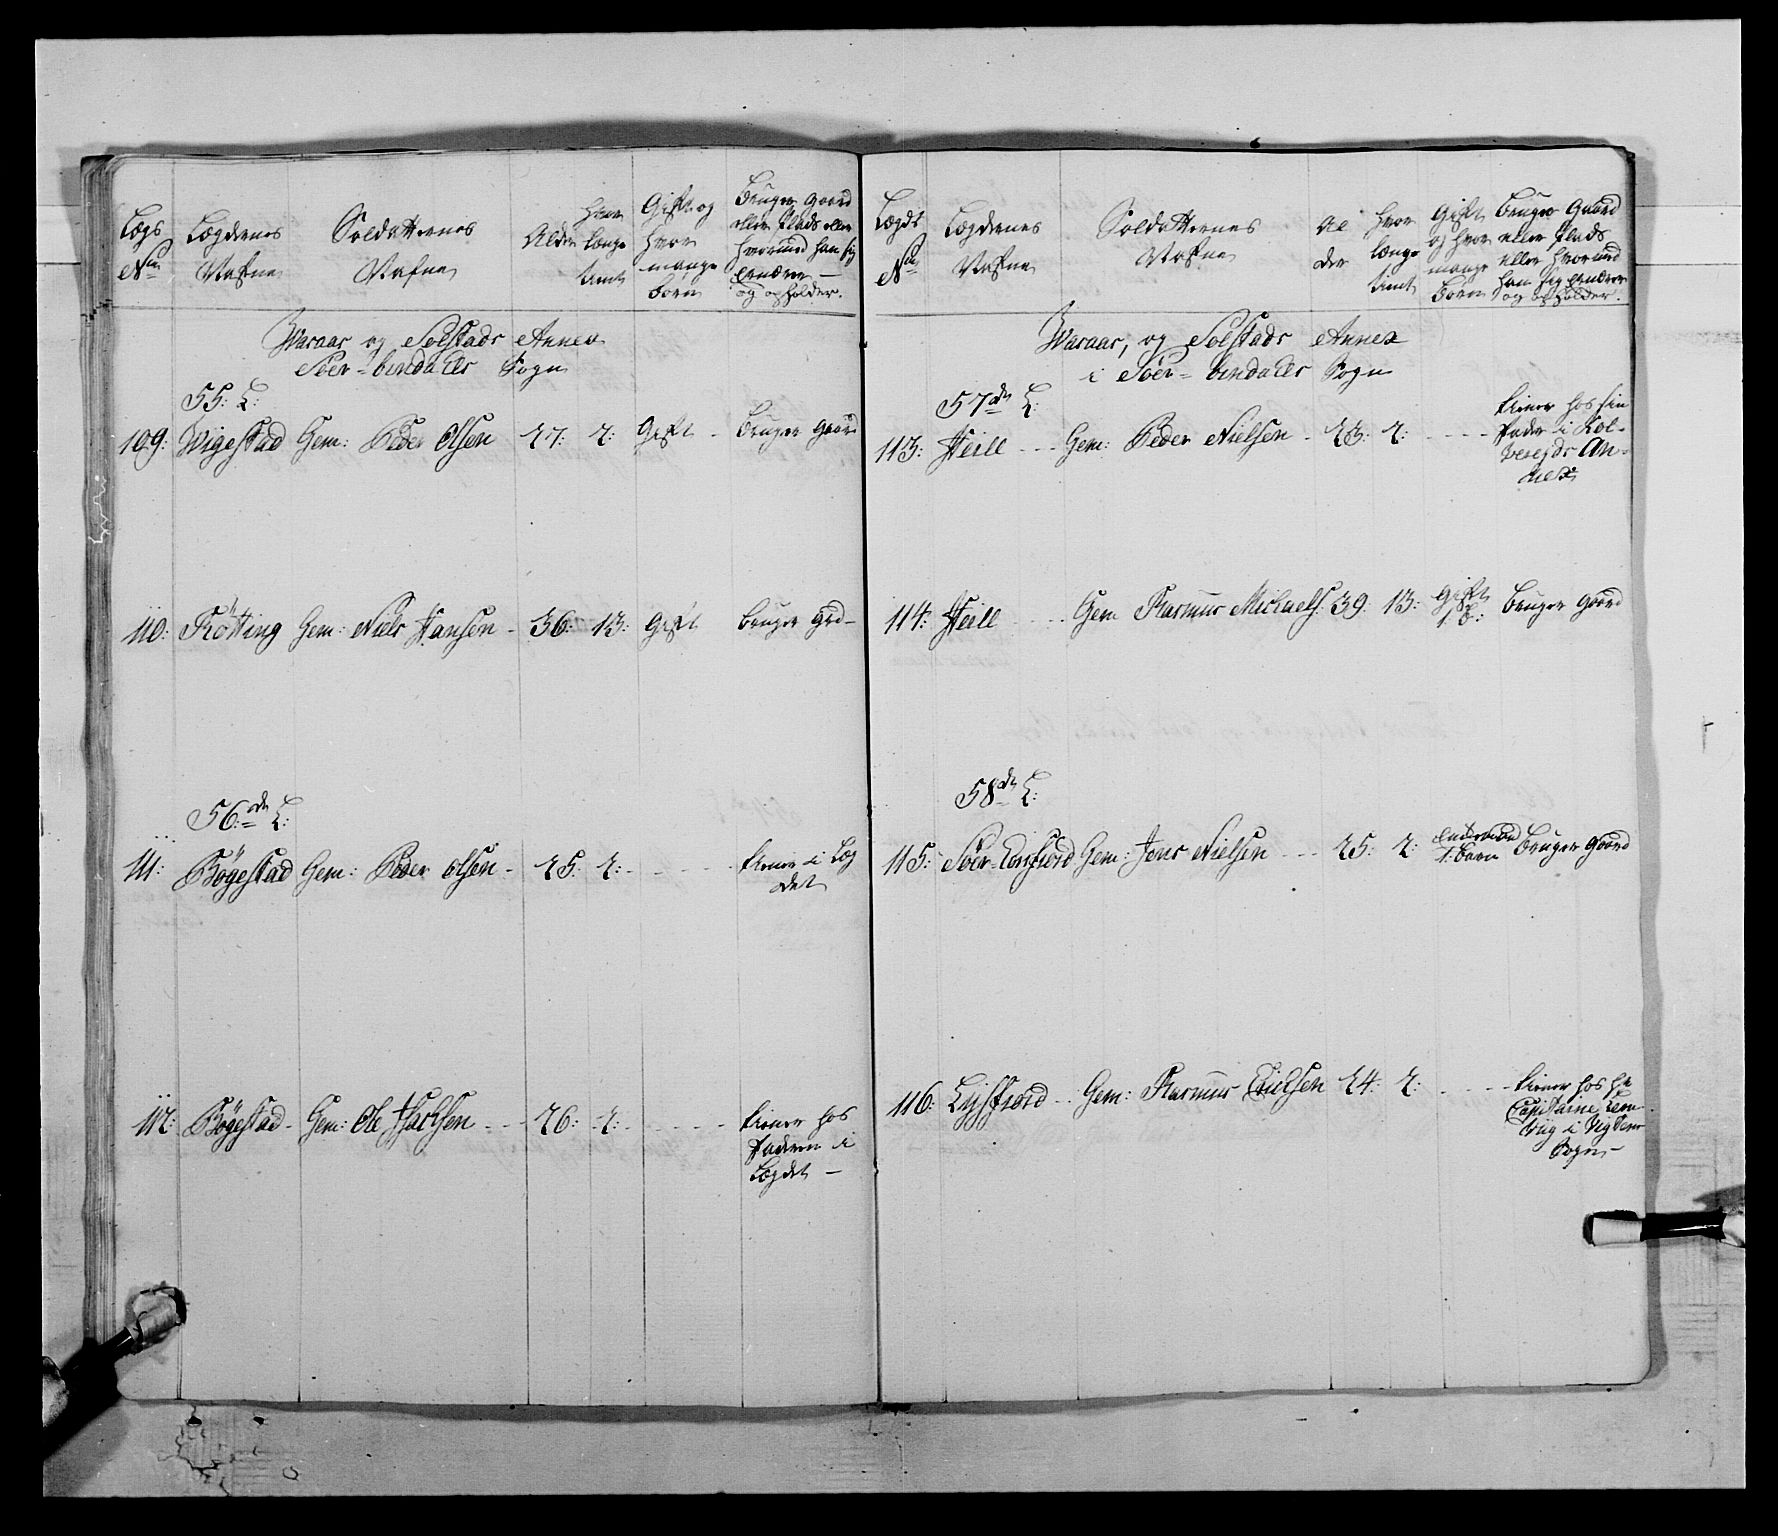 Lægs
No
Lægdernes
Nafne
Soldatternes
Nafne
Alder
Hvor
længe
tient
Gift og
hvor
mange
børn
Bruger Gaard
eller Plads eller
hvormed han sig
ernærer —
og opholder.
Waraas og Solstads Annex
Søer-bindalls Sogn
55: L:
109: Wigestad Gem: Peder Olsen 27: 2: Gift - Bruger Gaard
110: Røtting Gem: Niels Hansen - 36: 13: Gift Bruger Grd-
56de L:
111: Bøgestad Gem: Peder Olsen - 25: 2: - - - - tiener i Læg
det
112: Bøgestad - Gem: Ole Isachsen - - - 26: 2: - - - - tiener hos
Faderen i
Lægdet —
Lægdt
No
Lægdernes
Nafne
Soldatternes
Nafne
Al
der
Hvor
længe
tient
Gift
og hvor
mange
børn
Bruger Gaard
eller Plads
eller hvormed
han sig ernærer
og opholder.
Waraas, og Solstads Annex
i Søer-bindalls Sogn
57de L:
113: Heill - - - Gem: Peder Nielsen - 23: 2: - - - - tiener hos sin
Fader i Kol-
vereids An-
nex
114: Heill - - - - Gem Rasmus Michaels: 39: 13: Gift
1 B: Bruger Gaard
58de L:
115: Søer- Gem: Jens Nielsen - - - 25: 2: Enkemand
1: barn Bruger Gaard
116: Gem: Rasmus 24: 2: - - - - tiener hos Hr
Capitaine
i Sogn —